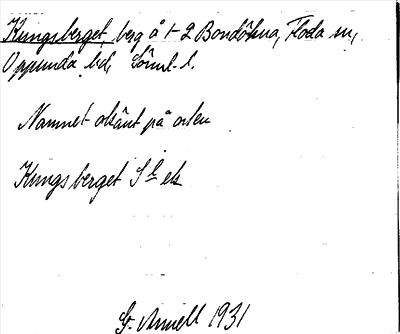 Kungsberget, berg å 1-2 Bondökna, Floda sn,
Oppunda hd, Söml. l.
Namnet okänt på orten
Kungsberget S b ek
G. Arnell 1931